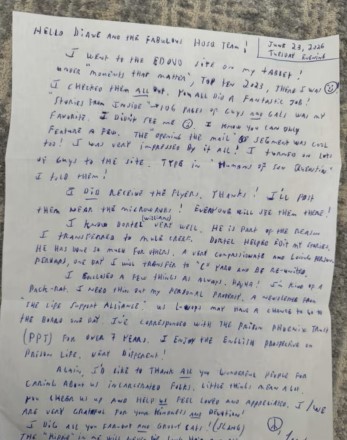 Hello Diane and the Fabulous HOSQ Team!
June 23, 2026
Tuesday Evening
I went to the EDOVO site on my tablet!
Under "Moments that Matter", Feb 2023, there I was
I checked them all out. You all did a fantastic job!
"Stories from Inside" pages of guys and gals was my
favorite. I didn't see me. I know you can only
feature a few. The "Opening the Mail" segment was cool
too! I was very impressed by it all! I turned on lots
of guys to the site. Type in "Humans of San Quentin"
I told them!
I did receive the flyers, Thanks! I'll post
them near the microwaves! Everyone will see them there!
I know Dortel (Williams) very well. He is part of the reason
I transferred to Mule Creek. Dortel helped edit my stories.
He has done so much for others. A very compassionate and loving person.
Perhaps, one day I will transfer to "C" yard and be re-united.
I enclosed a few things as always, Haha! I'm kind of a
pack-rat. I keep them for my personal. A newsletter from
"The Life Support Alliance". Us L-WOPs may have a chance to go to
the board one day. I've corresponded with the Prison Phoenix Trust
(PPT) for over 7 years. I enjoy the English perspective on
prison life. Very different!
Again, I'd like to thank all you wonderful people for
caring about us incarcerated folks. Little things mean a lot.
You cheer us up and help us feel loved and appreciated. I/we
are very grateful for your kindness and devotion!
I dig all you groovy cats! (Slang)
The in me will